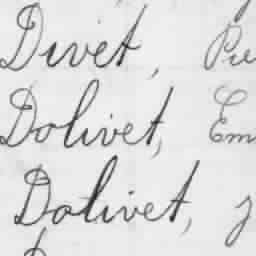 Divet, Pie
Dolivet, Em
Dolivet, J